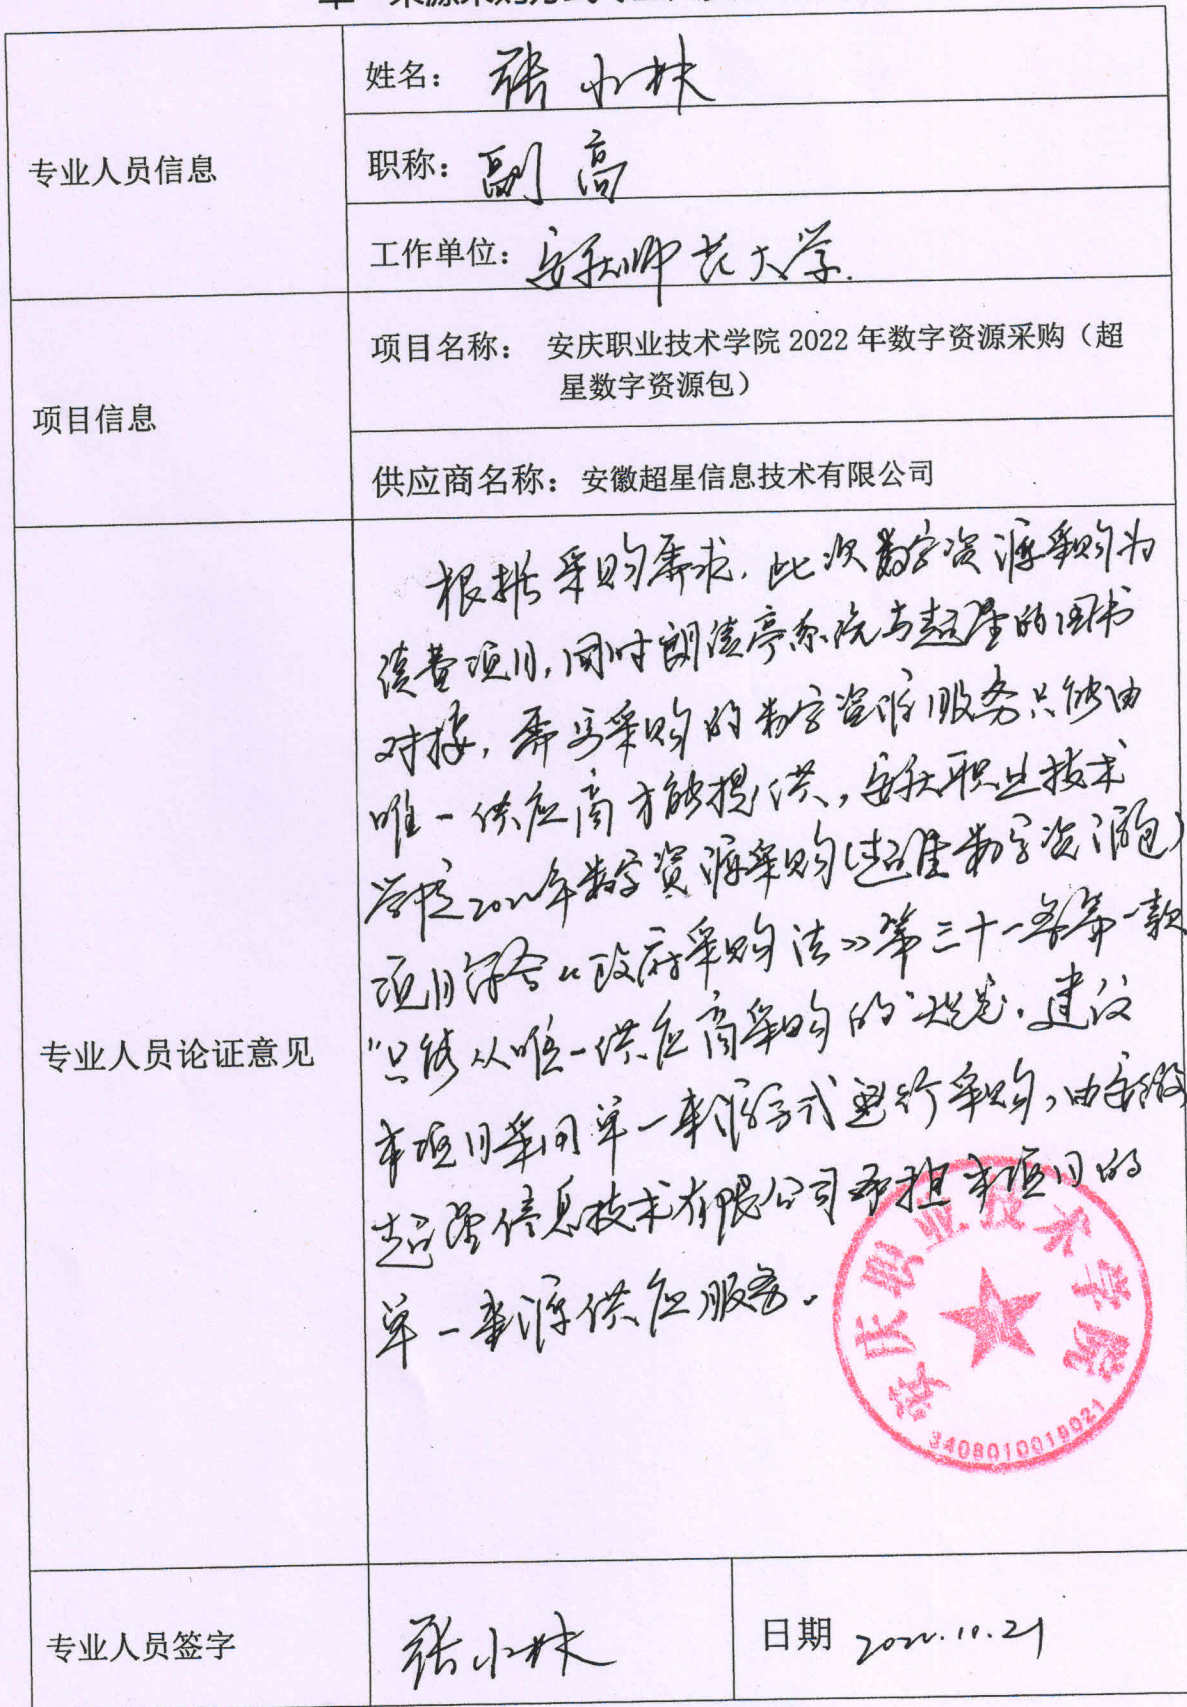 单一来源采购方式专业人员
专业人员信息
姓名：张小林
职称：副高
工作单位：安庆师范大学.
项目信息
项目名称： 安庆职业技术学院 2022 年数字资源采购（超
星数字资源包）
供应商名称：安徽超星信息技术有限公司
专业人员论证意见
根据采购需求，此次数字资源采购为
续费项目，同时朗读亭系统与超星的图书
对接，需要采购的数字资源服务只能由
唯一供应商才能提供，安庆职业技术
学院2022年数字资源采购(超星数字资源包)
项目符合《政府采购法》第三十一条第一款
"只能从唯一供应商采购的"规定，建议
本项目采用单一来源方式进行采购，由安徽
超星信息技术有限公司承担本项目的
单一来源供应服务。
安庆职业技术学院
3408010019021
专业人员签字
张小林
日期 2022.10.21